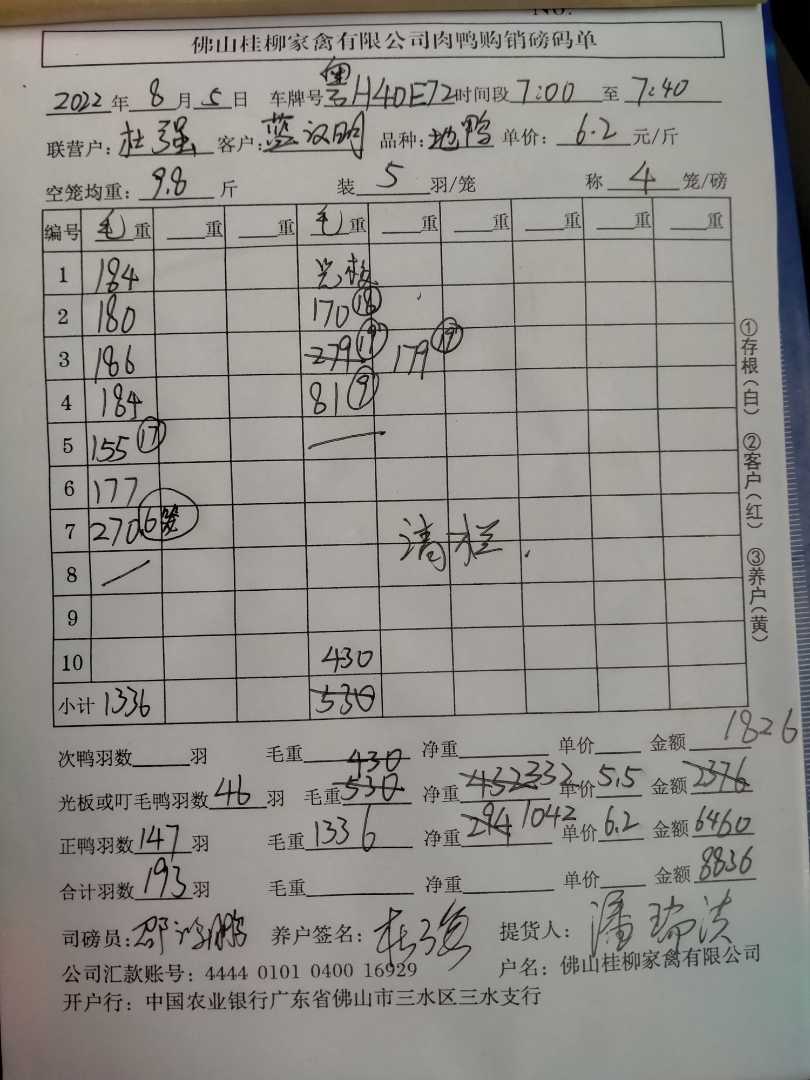 No.
佛山桂柳家禽有限公司肉鸭购销磅码单
2022年 8月 5日 车牌号粤H40E72 时间段 7:00 至 7:40
联营户:杜强 客户:蓝汉明 品种:地鸭 单价: 6.2 元/斤
空笼均重: 9.8 斤 装 5 羽/笼 称 4 笼/磅
编号 毛重 重 重 毛重 重 重 重 重 重
1 184 光板
2 180 170 ⑱
3 186 279 ⑲ 179 ⑲
4 184 81 ⑨
5 155 ⑰ —
6 177
7 270 6笼 清栏.
8 —
9
10 430
小计 1336 530
①存根(白) ②客户(红) ③养户(黄)
次鸭羽数 羽 毛重 430 净重 单价 金额 1826
光板或叮毛鸭羽数 46 羽 毛重 530 净重 432 332 单价 5.5 金额 2376
正鸭羽数 147 羽 毛重 1336 净重 294 1042 单价 6.2 金额 6460
合计羽数 193 羽 毛重 净重 单价 金额 8836
司磅员: 养户签名: 杜强 提货人: 潘瑞洪
公司汇款账号: 4444 0101 0400 16929 户名: 佛山桂柳家禽有限公司
开户行: 中国农业银行广东省佛山市三水区三水支行